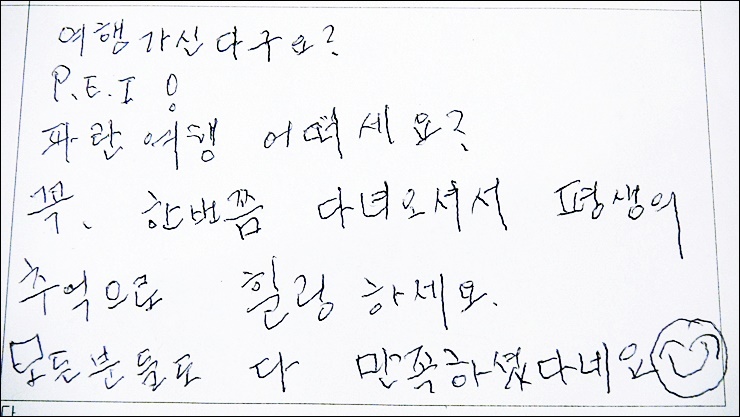 여행가신다구요?
P.E.I 요
파란여행 어떠세요?
꼭, 한번쯤 다녀오셔서 평생의
추억으로 힐링 하세요.
모든분들도 다 만족하셨다네요